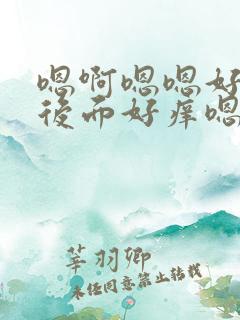 嗯啊嗯嗯好
後而好痒嗯
莘羽卿
未经同意禁止转载